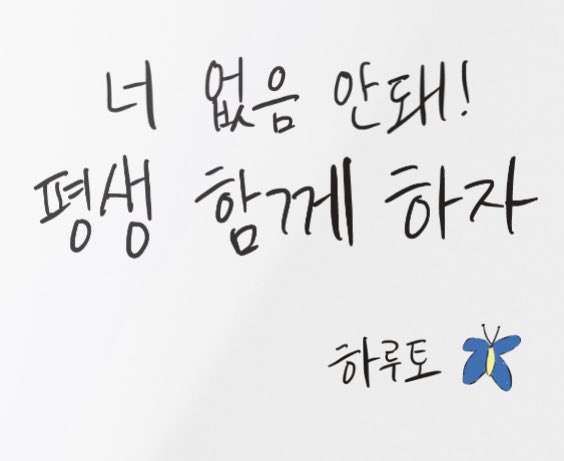 너 없음 안돼!
평생 함께 하자
하루토